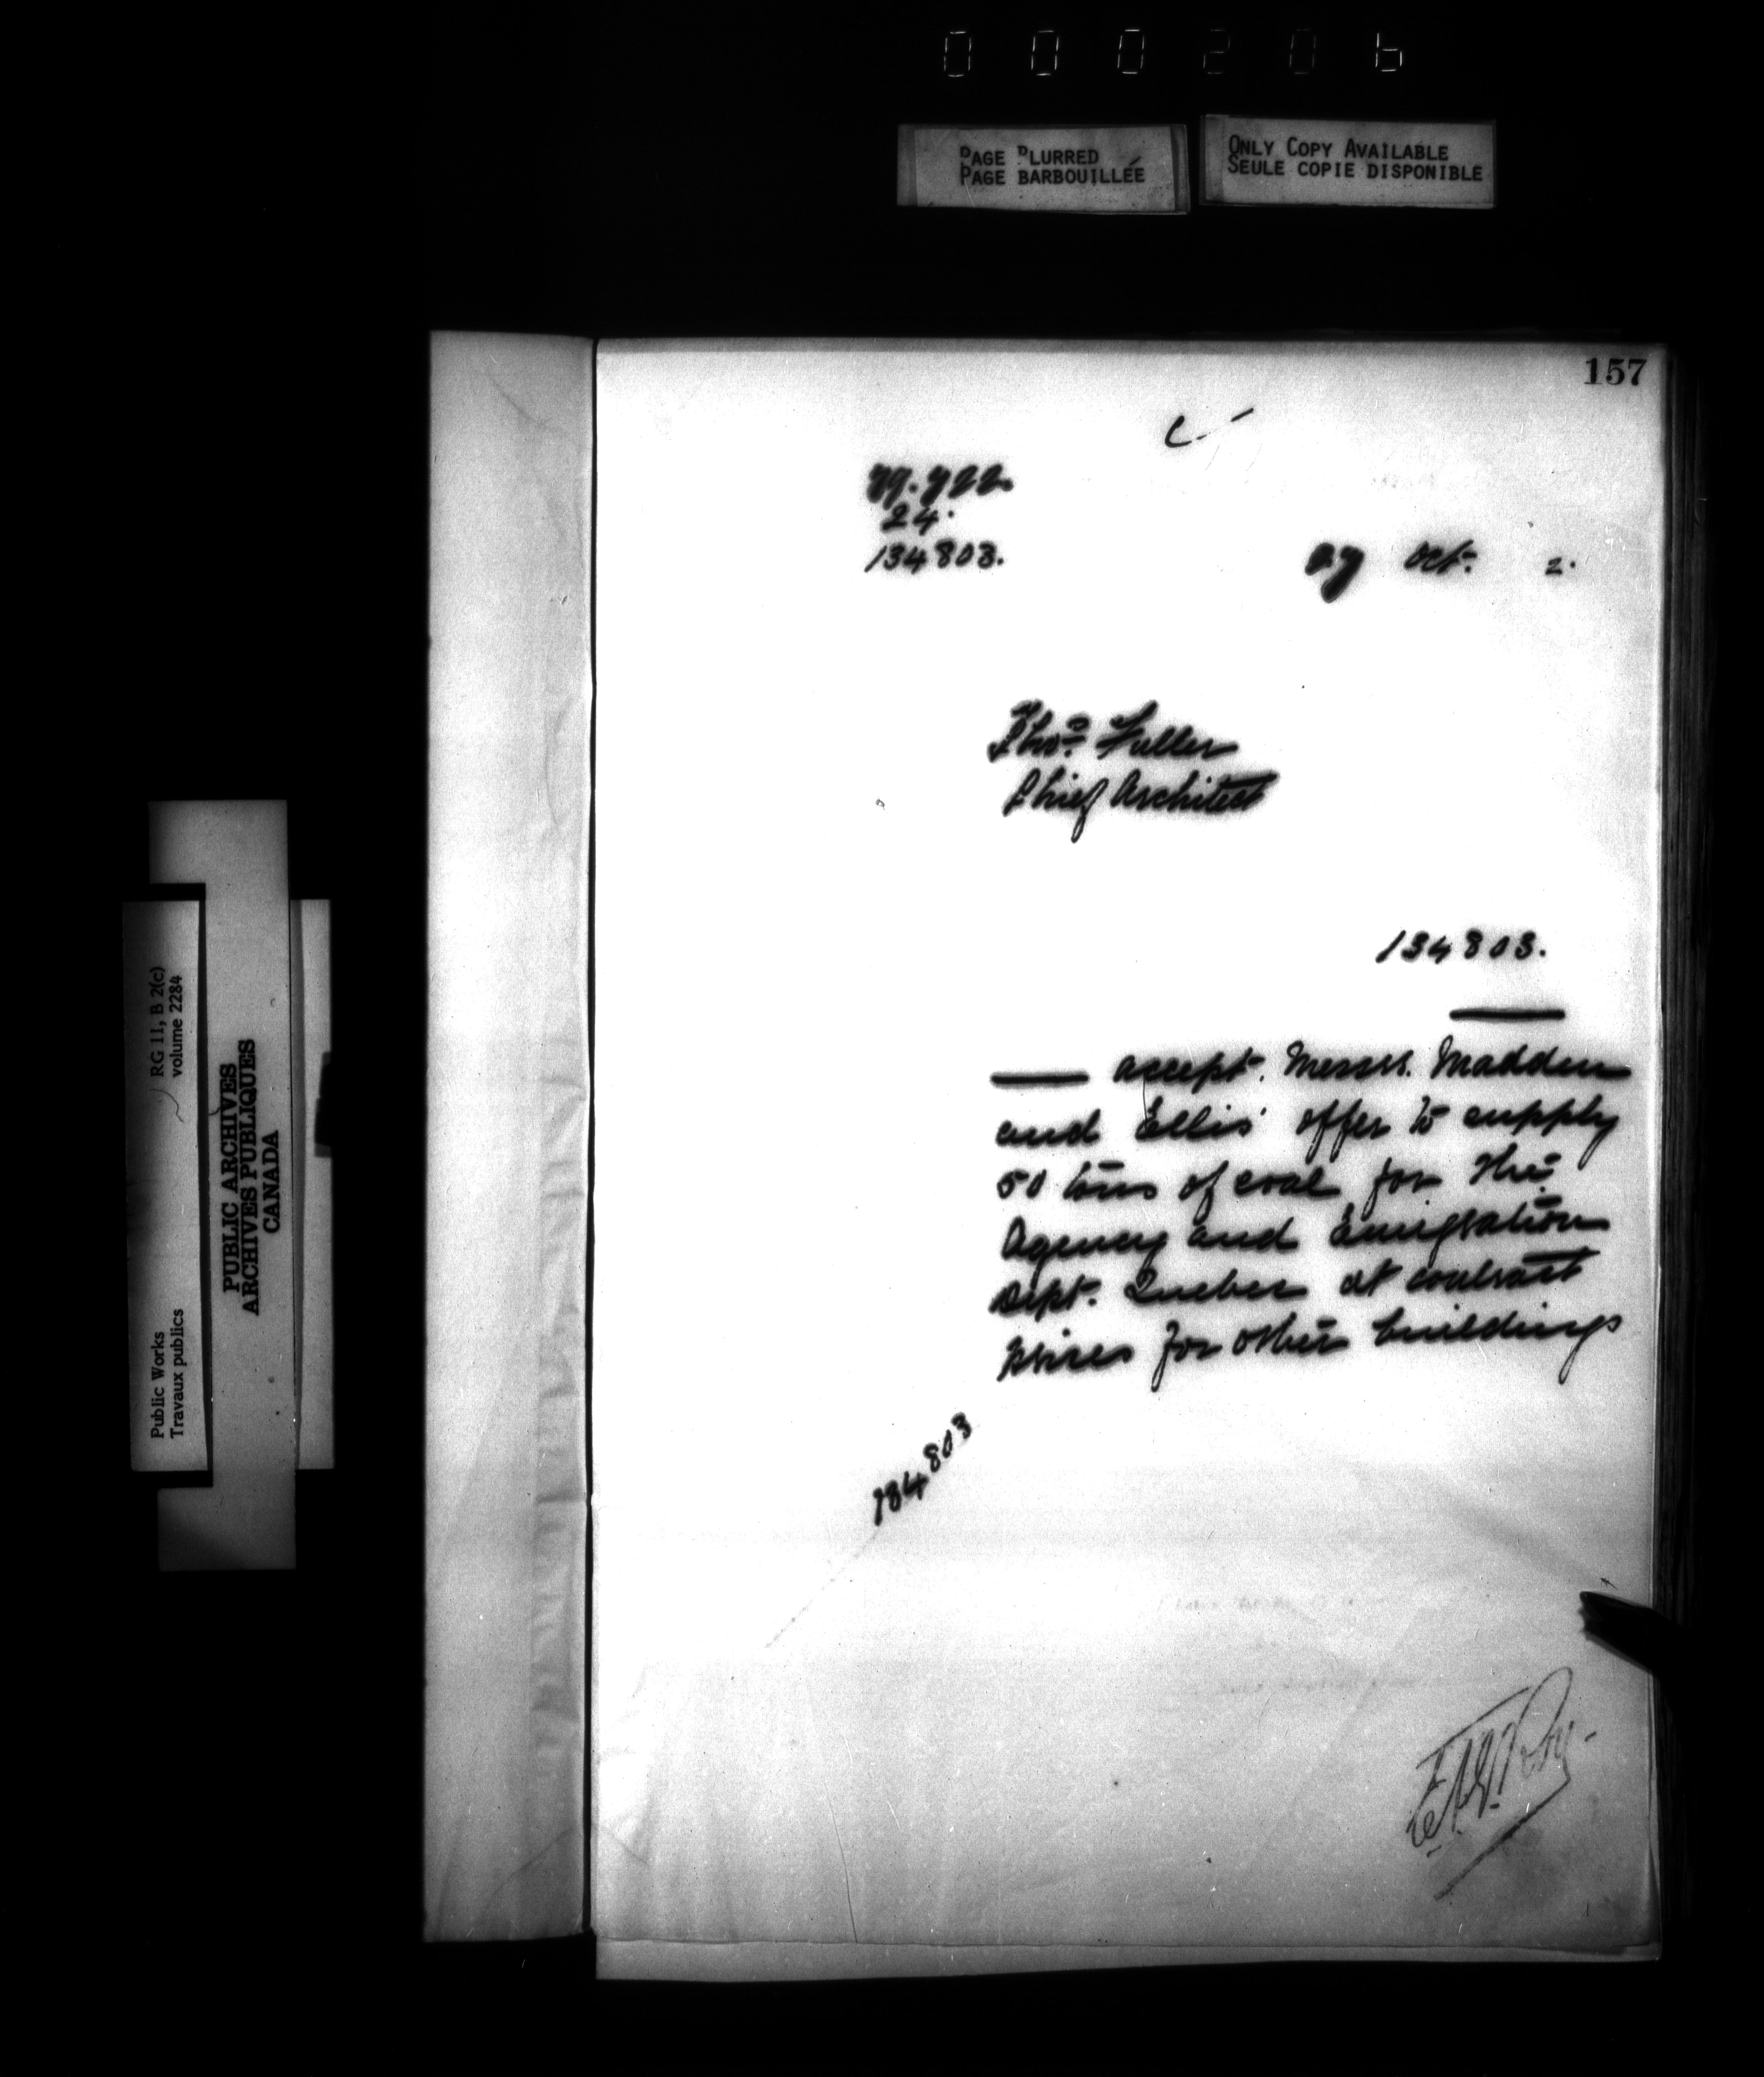 000206
PAGE BLURRED
PAGE BARBOUILLÉE
ONLY COPY AVAILABLE
SEULE COPIE DISPONIBLE
157
24.
134803.
27 Oct. 2.
Thos. Fuller
Chief Architect
134803.
accept. Messrs. Madden
and Ellis' offer to supply
50 tons of coal for the
Agency and Emigration
Dept. Quebec at contract
prices for other buildings
134803
RG 11, B 2(c)
volume 2284
Public Works
Travaux publics
PUBLIC ARCHIVES
ARCHIVES PUBLIQUES
CANADA